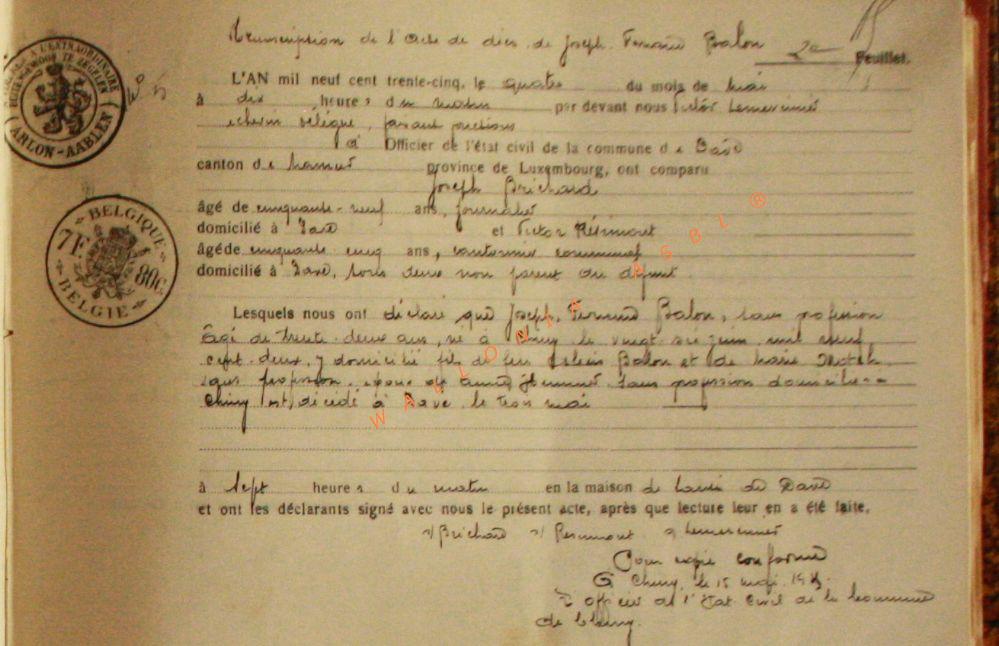 Transcription de l'Acte de décès de Joseph Fernand Balon 2e Feuillet.
L'AN mil neuf cent trente-cinq, le quatre du mois de mai
à dix heures du matin par devant nous Victor Lemercinier
échevin délégué, faisant fonctions
d' Officier de l'état civil de la commune de Dave
canton de Namur province de Luxembourg, ont comparu
Joseph Brichard
âgé de cinquante-neuf ans, journalier
domicilié à Dave et Victor
âgé de cinquante cinq ans, cantonnier communal
domicilié à Dave, tous deux non parent du défunt
Lesquels nous ont déclaré que Joseph, Fernand Balon, sans profession
âgé de trente-deux ans, né à Chiny le vingt six juin mil neuf
cent-deux, y domicilié fils de feu Balon et de Marie
sans profession, époux de sans profession domiciliée à
Chiny est décédé à Dave le trois mai
à sept heures du matin en la maison de de Dave
et ont les déclarants signé avec nous le présent acte, après que lecture leur en a été faite.
s/ Brichard s/ s/ Lemercinier
Pour copie conforme
A Chiny, le 15 mai 1935.
L'officier de l'Etat Civil de la Commune
de Chiny.
ARLON-AARLEN
BELGIQUE
7F 80C.
BELGIE
WALLONIA ASBL ®